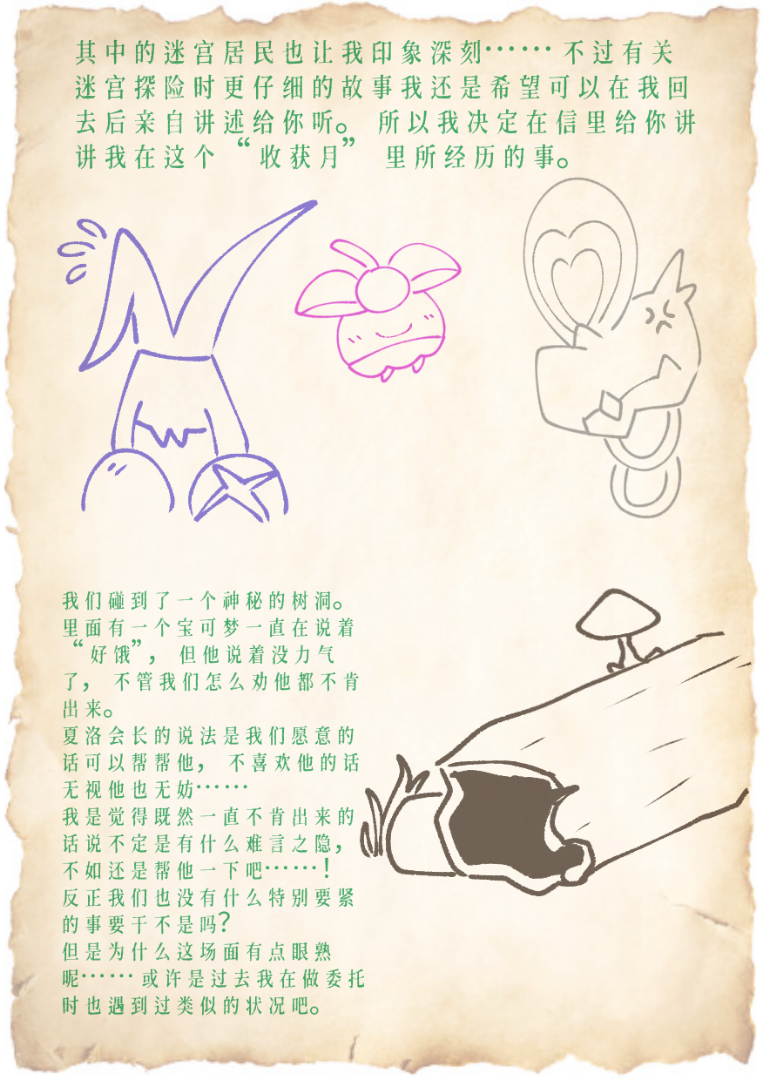 其中的迷宫居民也让我印象深刻…… 不过有关
迷宫探险时更仔细的故事我还是希望可以在我回
去后亲自讲述给你听。 所以我决定在信里给你讲
讲我在这个“收获月” 里所经历的事。
我们碰到了一个神秘的树洞。
里面有一个宝可梦一直在说着
“好饿”， 但他说着没力气
了， 不管我们怎么劝他都不肯
出来。
夏洛会长的说法是我们愿意的
话可以帮帮他， 不喜欢他的话
无视他也无妨……
我是觉得既然一直不肯出来的
话说不定是有什么难言之隐，
不如还是帮他一下吧……！
反正我们也没有什么特别要紧
的事要干不是吗？
但是为什么这场面有点眼熟
呢…… 或许是过去我在做委托
时也遇到过类似的状况吧。